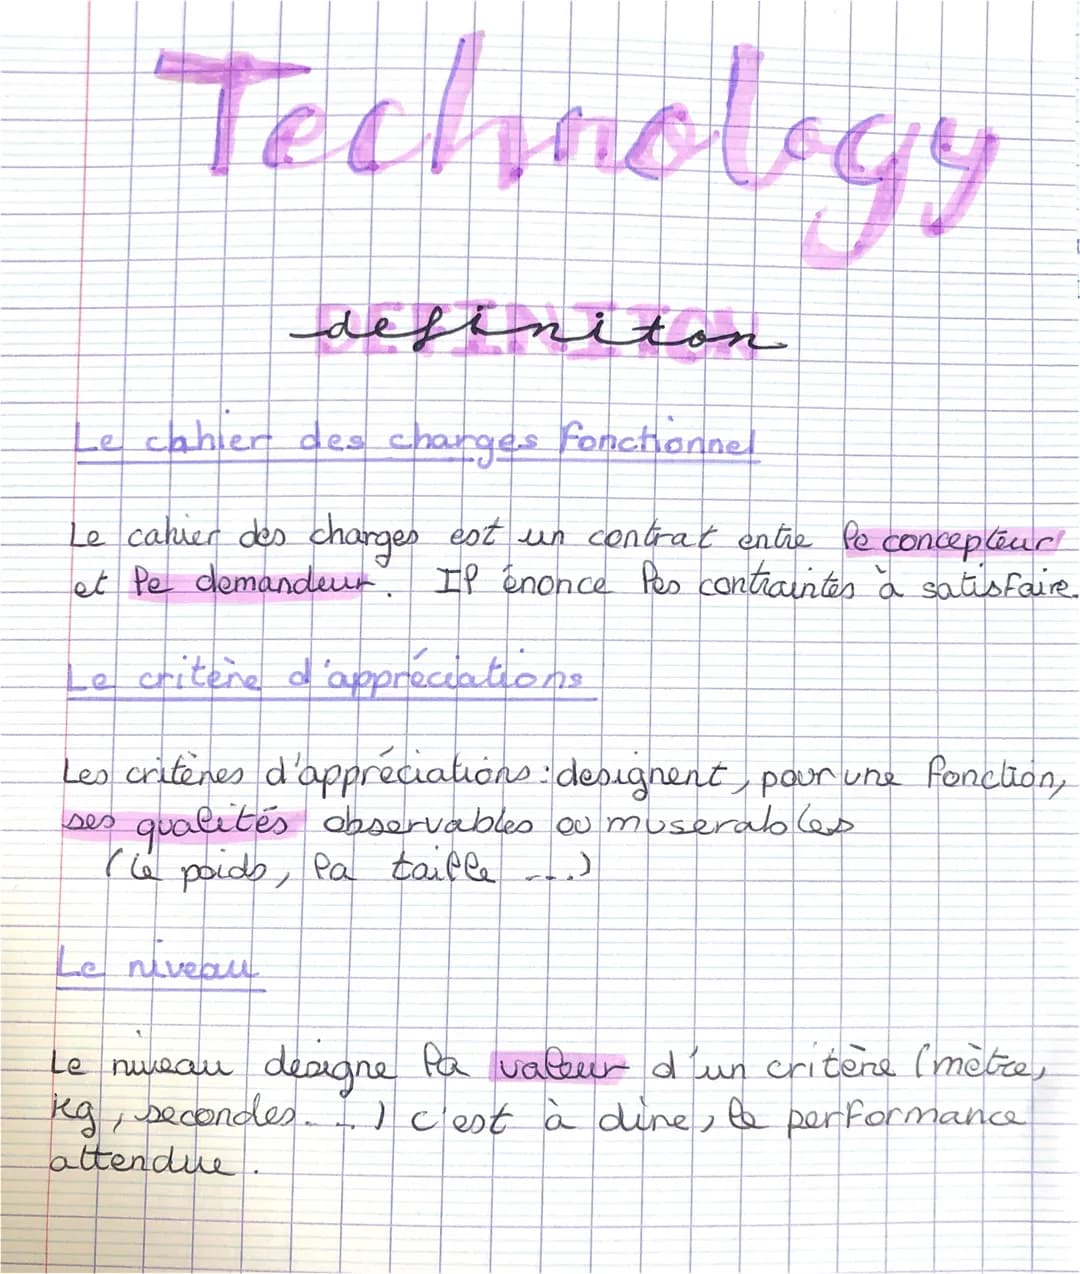 Technology
DEFINITON
definiton
Le cahier des charges fonctionnel
Le cahier des charges est un contrat entre le concepteur
et le demandeur. Il énonce les contraintes à satisfaire.
Le critère d'appréciations
Les critères d'appréciations : designent, pour une fonction,
ses qualités observables ou muserables
(le poids, la taille ....)
Le niveau
Le niveau designe la valeur d'un critère (mètre,
kg, secondes....) c'est à dire, la performance
attendue.